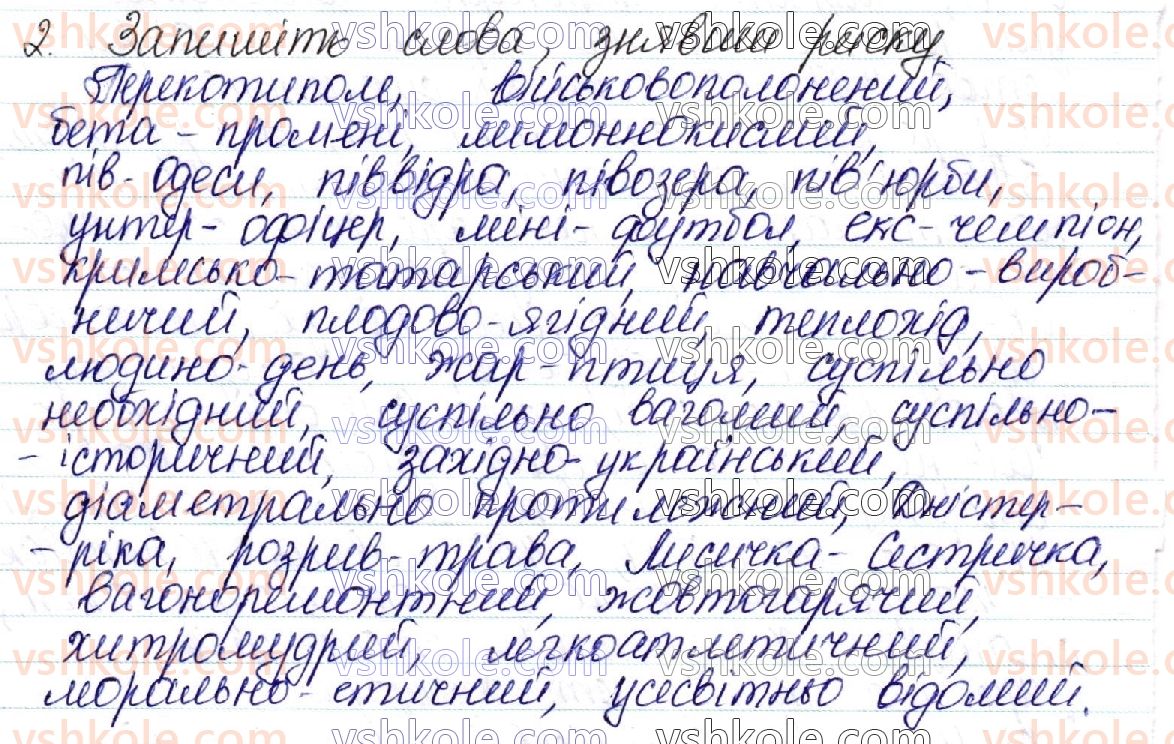 2. Запишіть слова, знявши риску
Перекотиполе, військовополонений,
бета-промені, лимоннокислий,
пів-Одеси, піввідра, півозера, пів'юрби,
унтер-офіцер, міні-футбол, екс-чемпіон,
кримсько-татарський, навчально-вироб-
ничий, плодово-ягідний, теплохід,
людино-день, жар-птиця, суспільно
необхідний, суспільно вагомий, суспільно-
-історичний, західно-український,
діаметрально протилежний, Дністер-
-ріка, розрив-трава, Лисичка-Сестричка,
вагоноремонтний, жовтогарячий,
хитромудрий, легкоатлетичний,
морально-етичний, усесвітньо відомий.